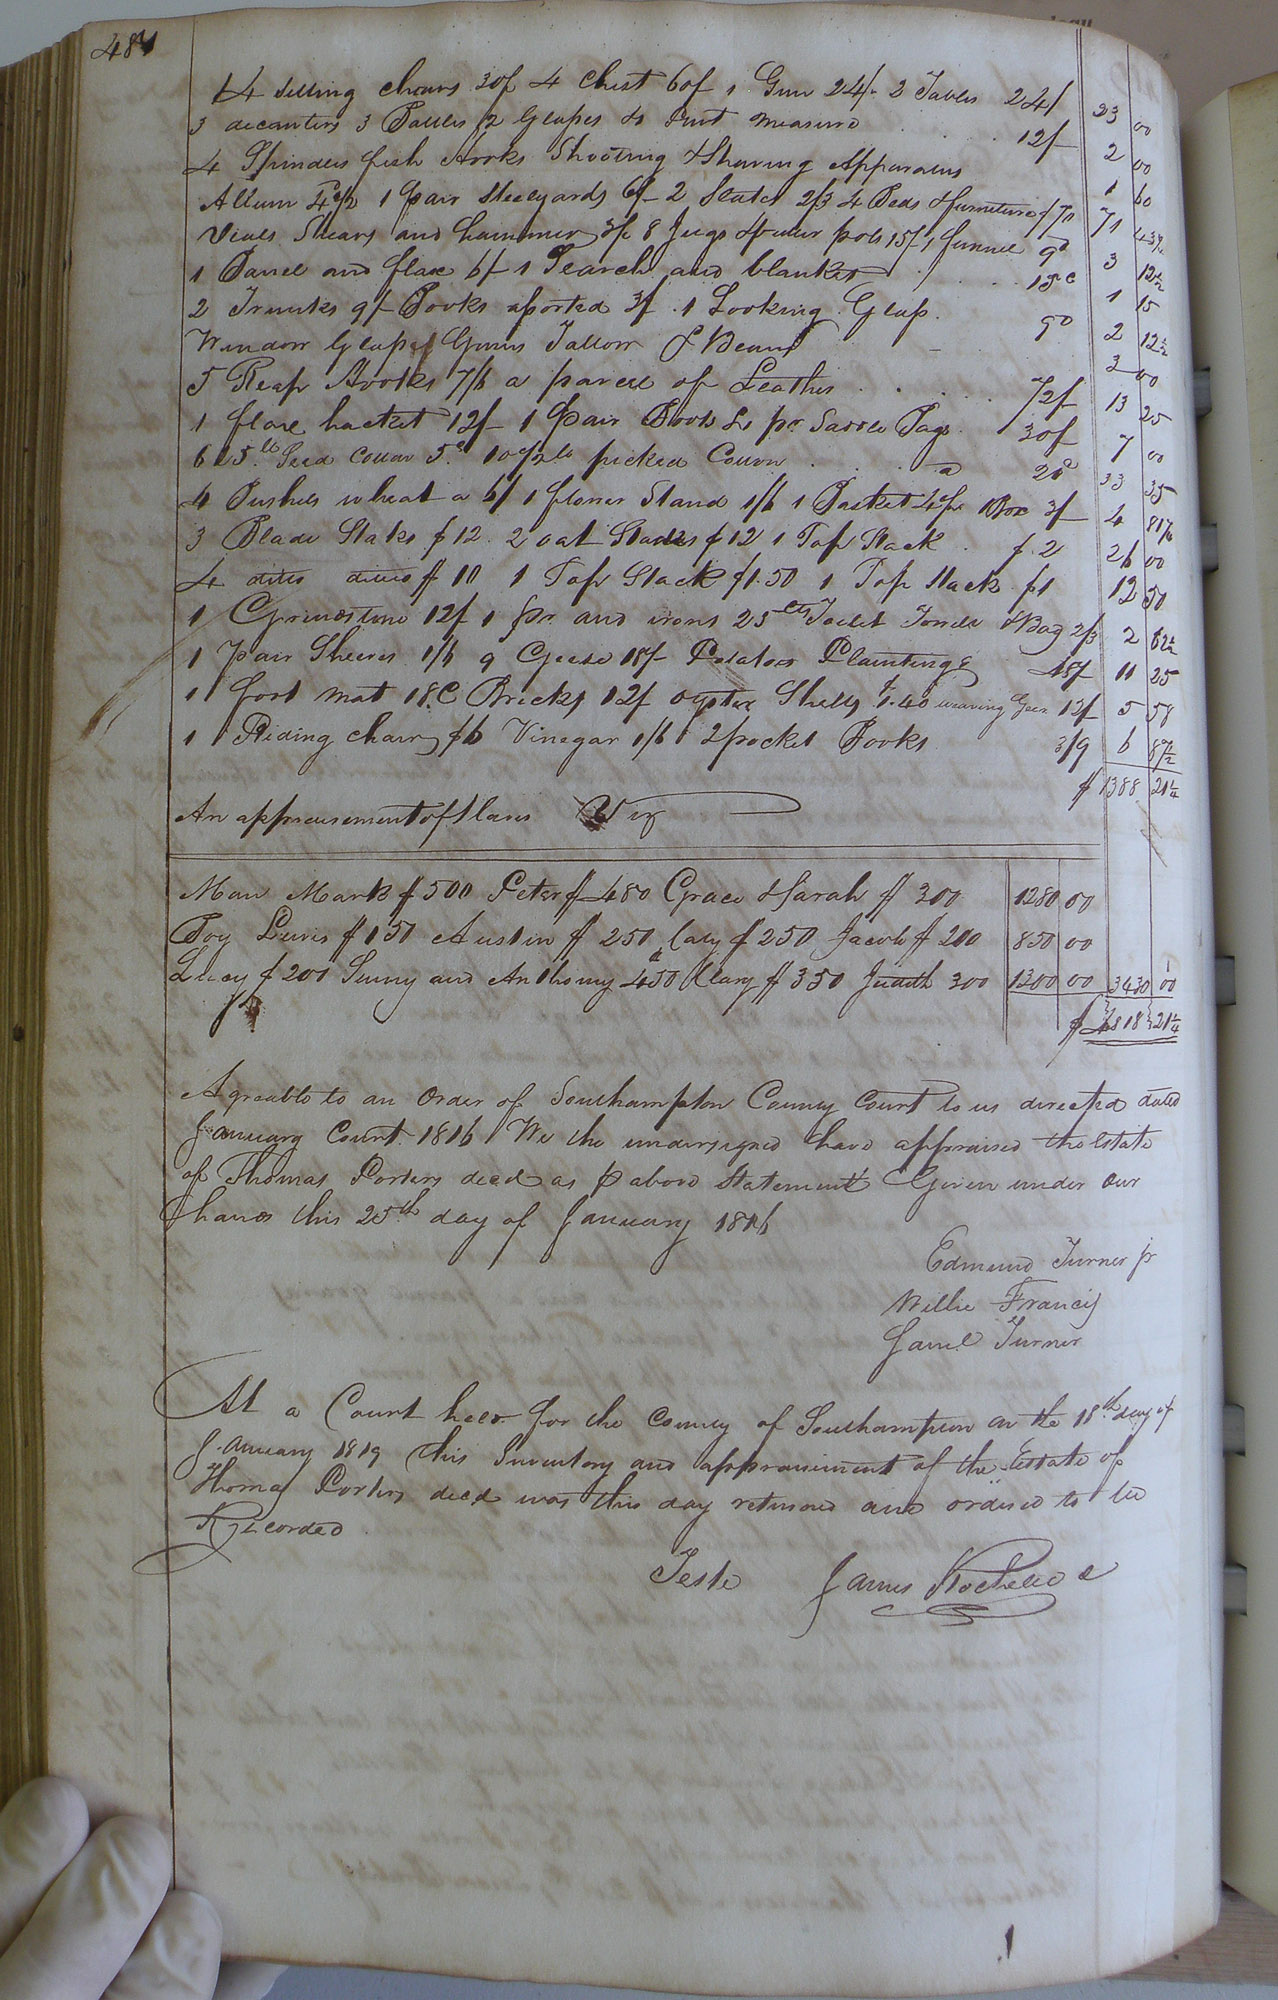 484
14 Setting chairs 30/ 4 Chest 60/ 1 Gun 24/- 2 Tables 24/ 23 00
3 decanters 3 Bottles 2 Glapes & pint measure 12/ 2 00
4 Spindles fish Hooks Shooting & Shaving Apparatus 1 60
Allum 1 pair Steelyards 6/- 2 Slates 2/3 4 Beds & furniture $70 71 43¾
Vials Shears and hammer 3/ 8 Jugs & butter pots 15/ 1 funnel 9d 3 12½
1 Barrel and flax 6/ 1 Search and blanket 15c 1 15
2 Trunks 9/ Books aported 3/ 1 Looking Glap 9d 2 12½
Window Glapes Gums Tallow & Beans 3 00
5 Reap Hooks 7/6 a parcel of Leather 72/ 13 25
1 flax hacket 12/ 1 pair Boots & 1 pr Saddle Bags 30/ 7 00
lb Seed Cotton 5c 107½ lb picked Cotton a 20c 33 35
4 Bushels wheat a 6/ 1 flower Stand 1/6 1 Basket 1 Box 3/ 4 81¼
3 Blade Staks $12 2 oat Stacks $12 1 Top Stack $2 26 00
4 ditto ditto $10 1 Top Stack $1.50 1 Top Stack $1 12 50
1 Grindstone 12/ 1 pr and irons 25 cts & Bag 2/3 2 62½
1 pair Sheers 1/6 9 Geese 18/- Potatoes Planting & 48/ 11 25
1 foot mat 18C Bricks 12/ oyster Shells $1.40 weaving Geer 12/ 5 58
1 Riding chair $6 Vinegar 1/6 2 pocket Books 3/9 6 87½
$ 1388 21¼
An appraisement of Slaves Viz
Man Mark $500 Peter $480 Grace & Sarah $300 1280 00
Boy Lewis $150 Austin $250 $250 Jacob $200 850 00
Lucy $200 and Anthony 450 Mary $350 Judith 300 1300 00 3430 00
$ 4818 21¼
Agreable to an Order of Southampton County Court to us directed dated
January Court 1816 We the undersigned have appraised the Estate
of Thomas Porters decd as p above Statement Given under our
hands this 25th day of January 1816
Edmund Turner jr
Willie Francis
Turner
At a Court held for the County of Southampton on the 18th day of
January 1819 this Inventory and appraisement of the Estate of
Thomas Porters decd was this day returned and ordered to be
Recorded
Teste James Rochelle c